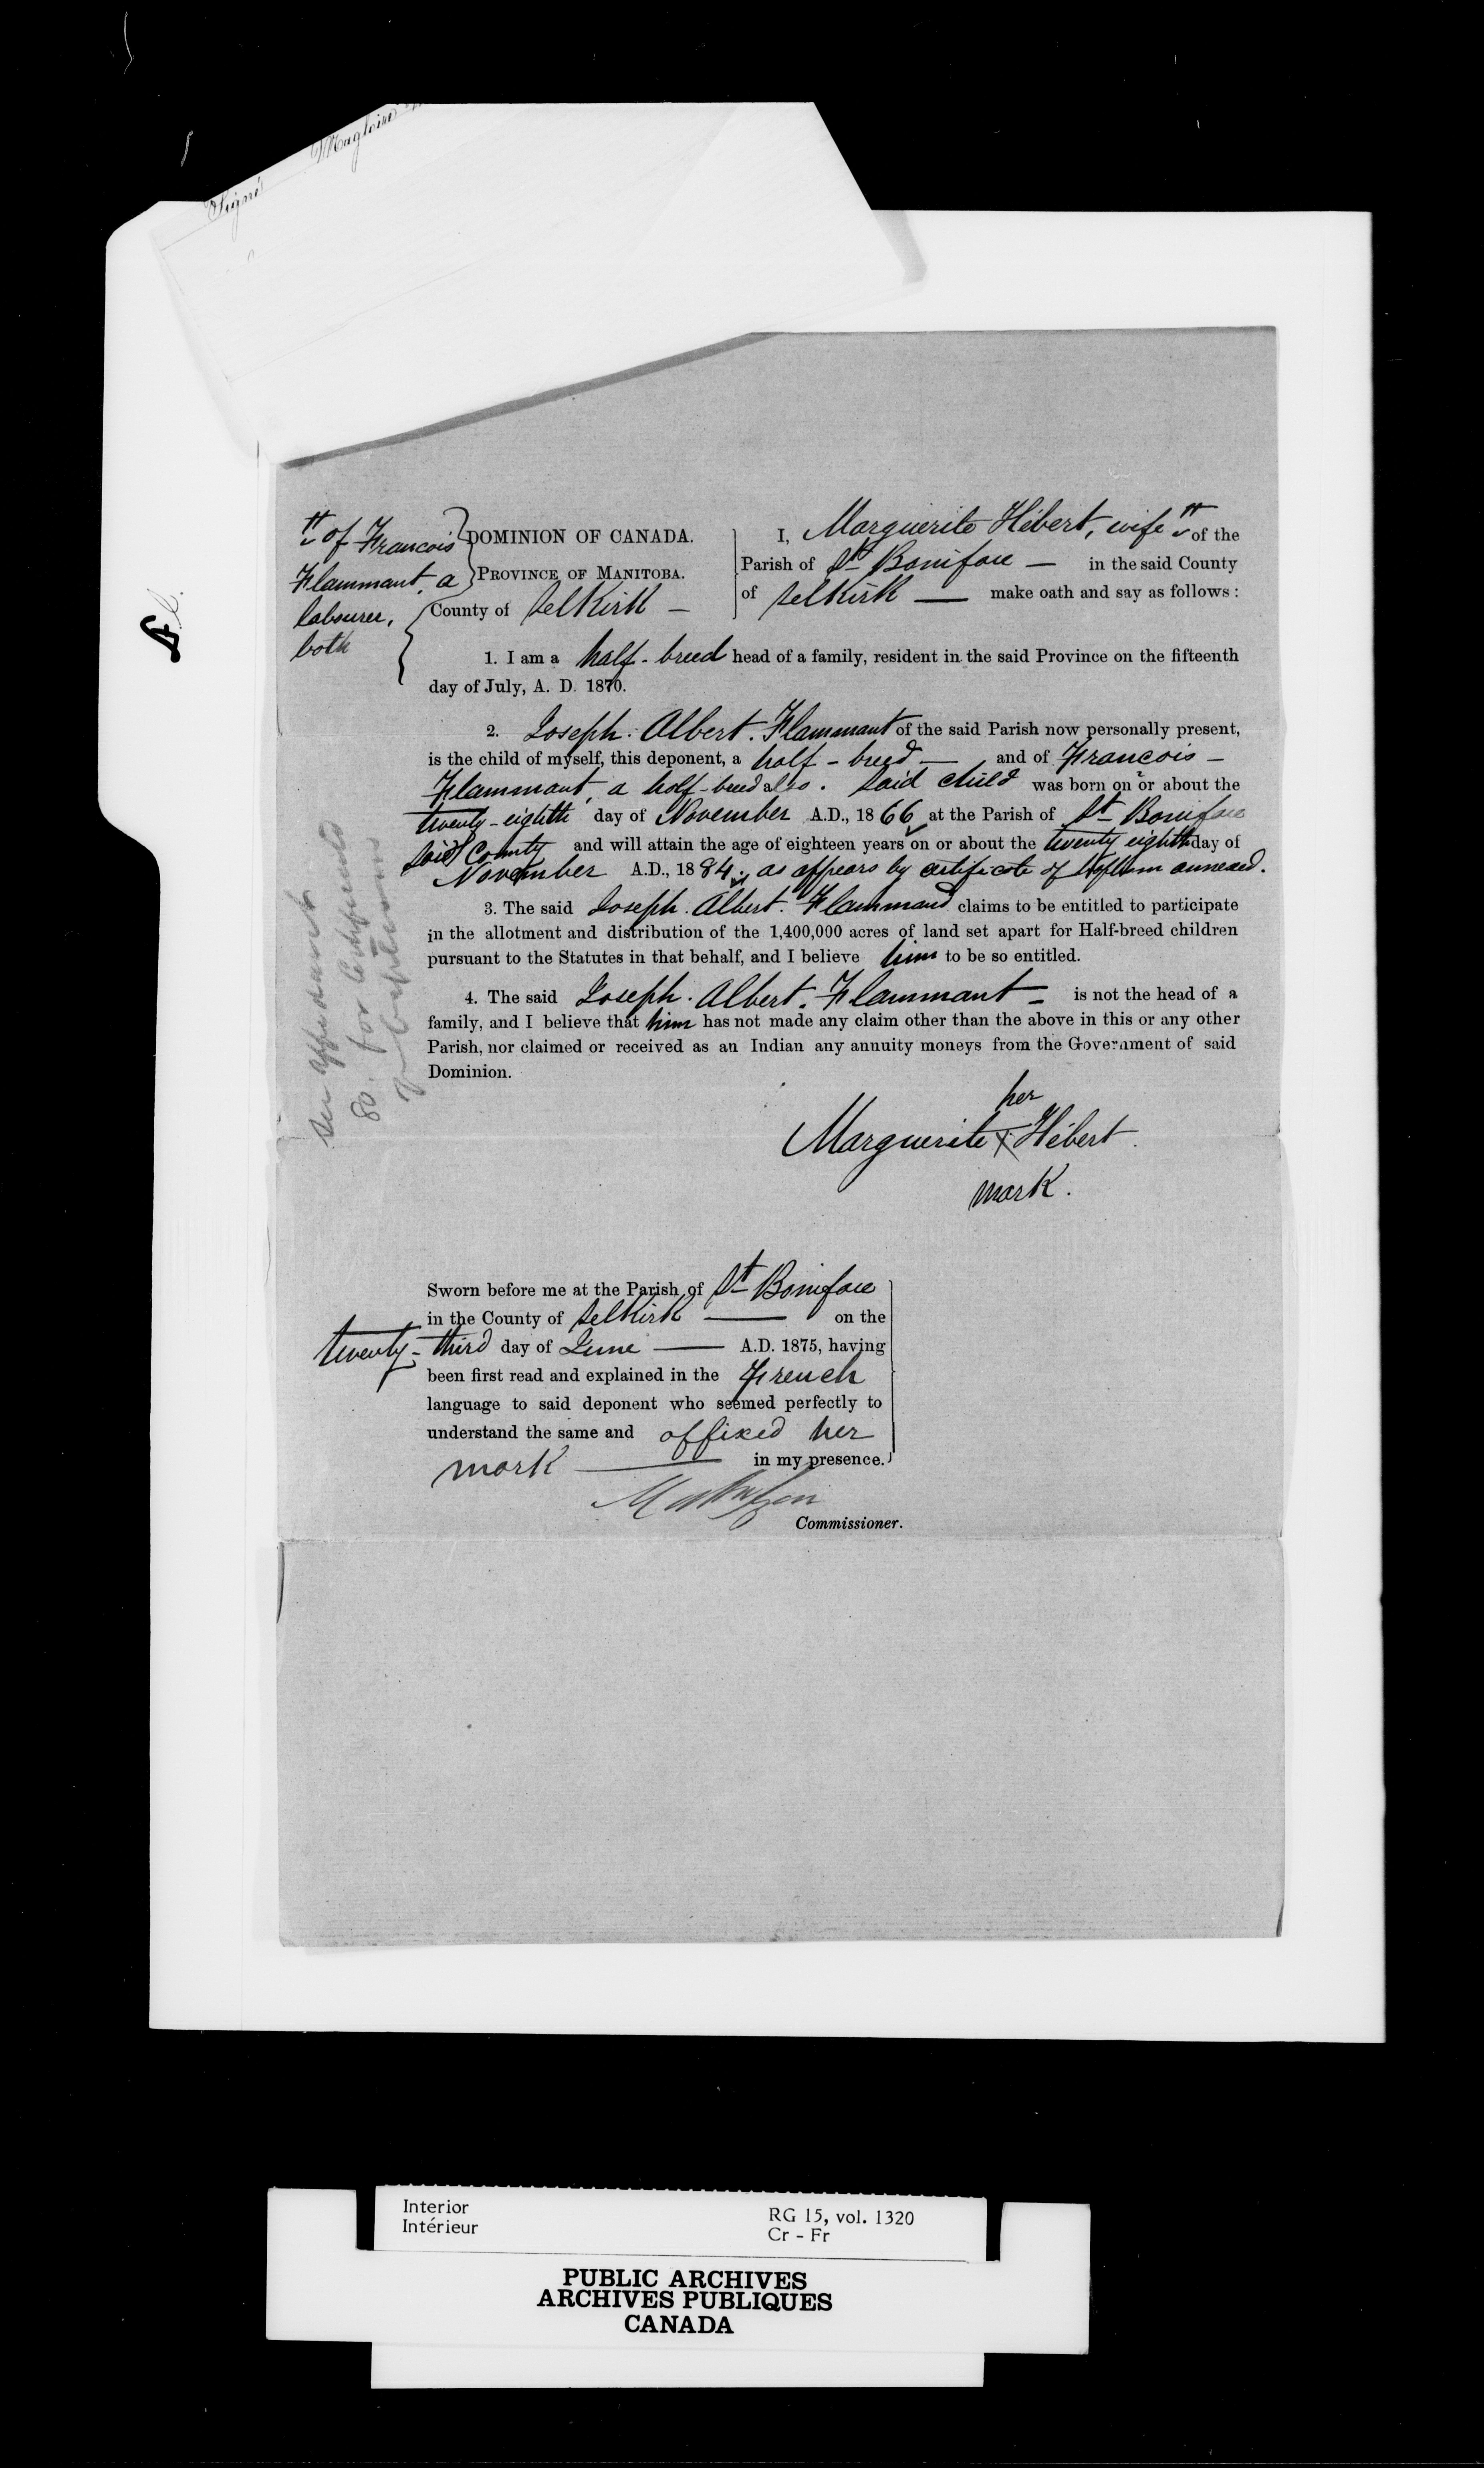 Signé Magloire
# of Francois
Flammant, a
labourer,
both
DOMINION OF CANADA.
PROVINCE OF MANITOBA.
County of Selkirk —
I, Marguerite Hébert, wife # of the
Parish of St Boniface — in the said County
of Selkirk — make oath and say as follows:
1. I am a half-breed head of a family, resident in the said Province on the fifteenth
day of July, A. D. 1870.
2. Joseph. Albert. Flammant of the said Parish now personally present,
is the child of myself, this deponent, a half-breed — and of Francois —
Flammant, a half-breed also. Said child was born on or about the
twenty-eighth day of November A.D., 1866 at the Parish of St Boniface
said County and will attain the age of eighteen years on or about the twenty eighth day of
November A.D., 1884. as appears by certificate of baptism annexed.
3. The said Joseph. Albert. Flammand claims to be entitled to participate
in the allotment and distribution of the 1,400,000 acres of land set apart for Half-breed children
pursuant to the Statutes in that behalf, and I believe him to be so entitled.
4. The said Joseph. Albert. Flammant — is not the head of a
family, and I believe that him has not made any claim other than the above in this or any other
Parish, nor claimed or received as an Indian any annuity moneys from the Government of said
Dominion.
See affidavit
80. for Certificate
of baptism
her
Marguerite X Hébert.
mark.
Sworn before me at the Parish of St Boniface
in the County of Selkirk — on the
twenty-third day of June — A.D. 1875, having
been first read and explained in the French
language to said deponent who seemed perfectly to
understand the same and affixed her
mark — in my presence.
Commissioner.
Interior
Intérieur
RG 15, vol. 1320
Cr - Fr
PUBLIC ARCHIVES
ARCHIVES PUBLIQUES
CANADA